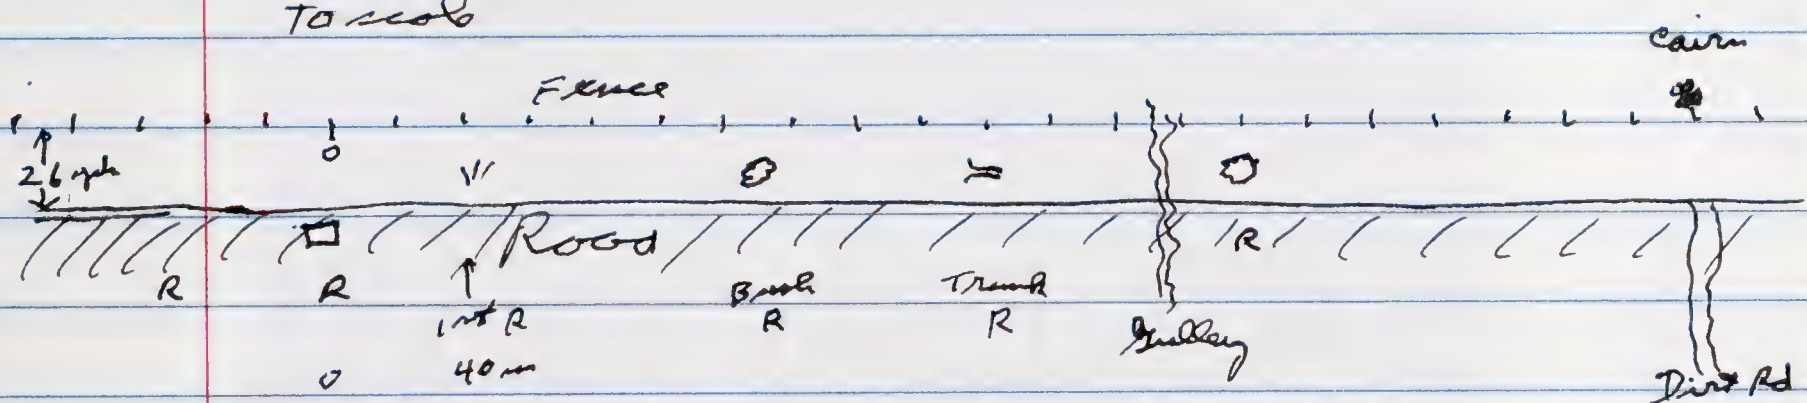 To scale
Cairn
Fence
0
26 yds
Road
R
R R
1st R
Bush
R
Trunk
R
Gulley
0 40 m
Dirt Rd